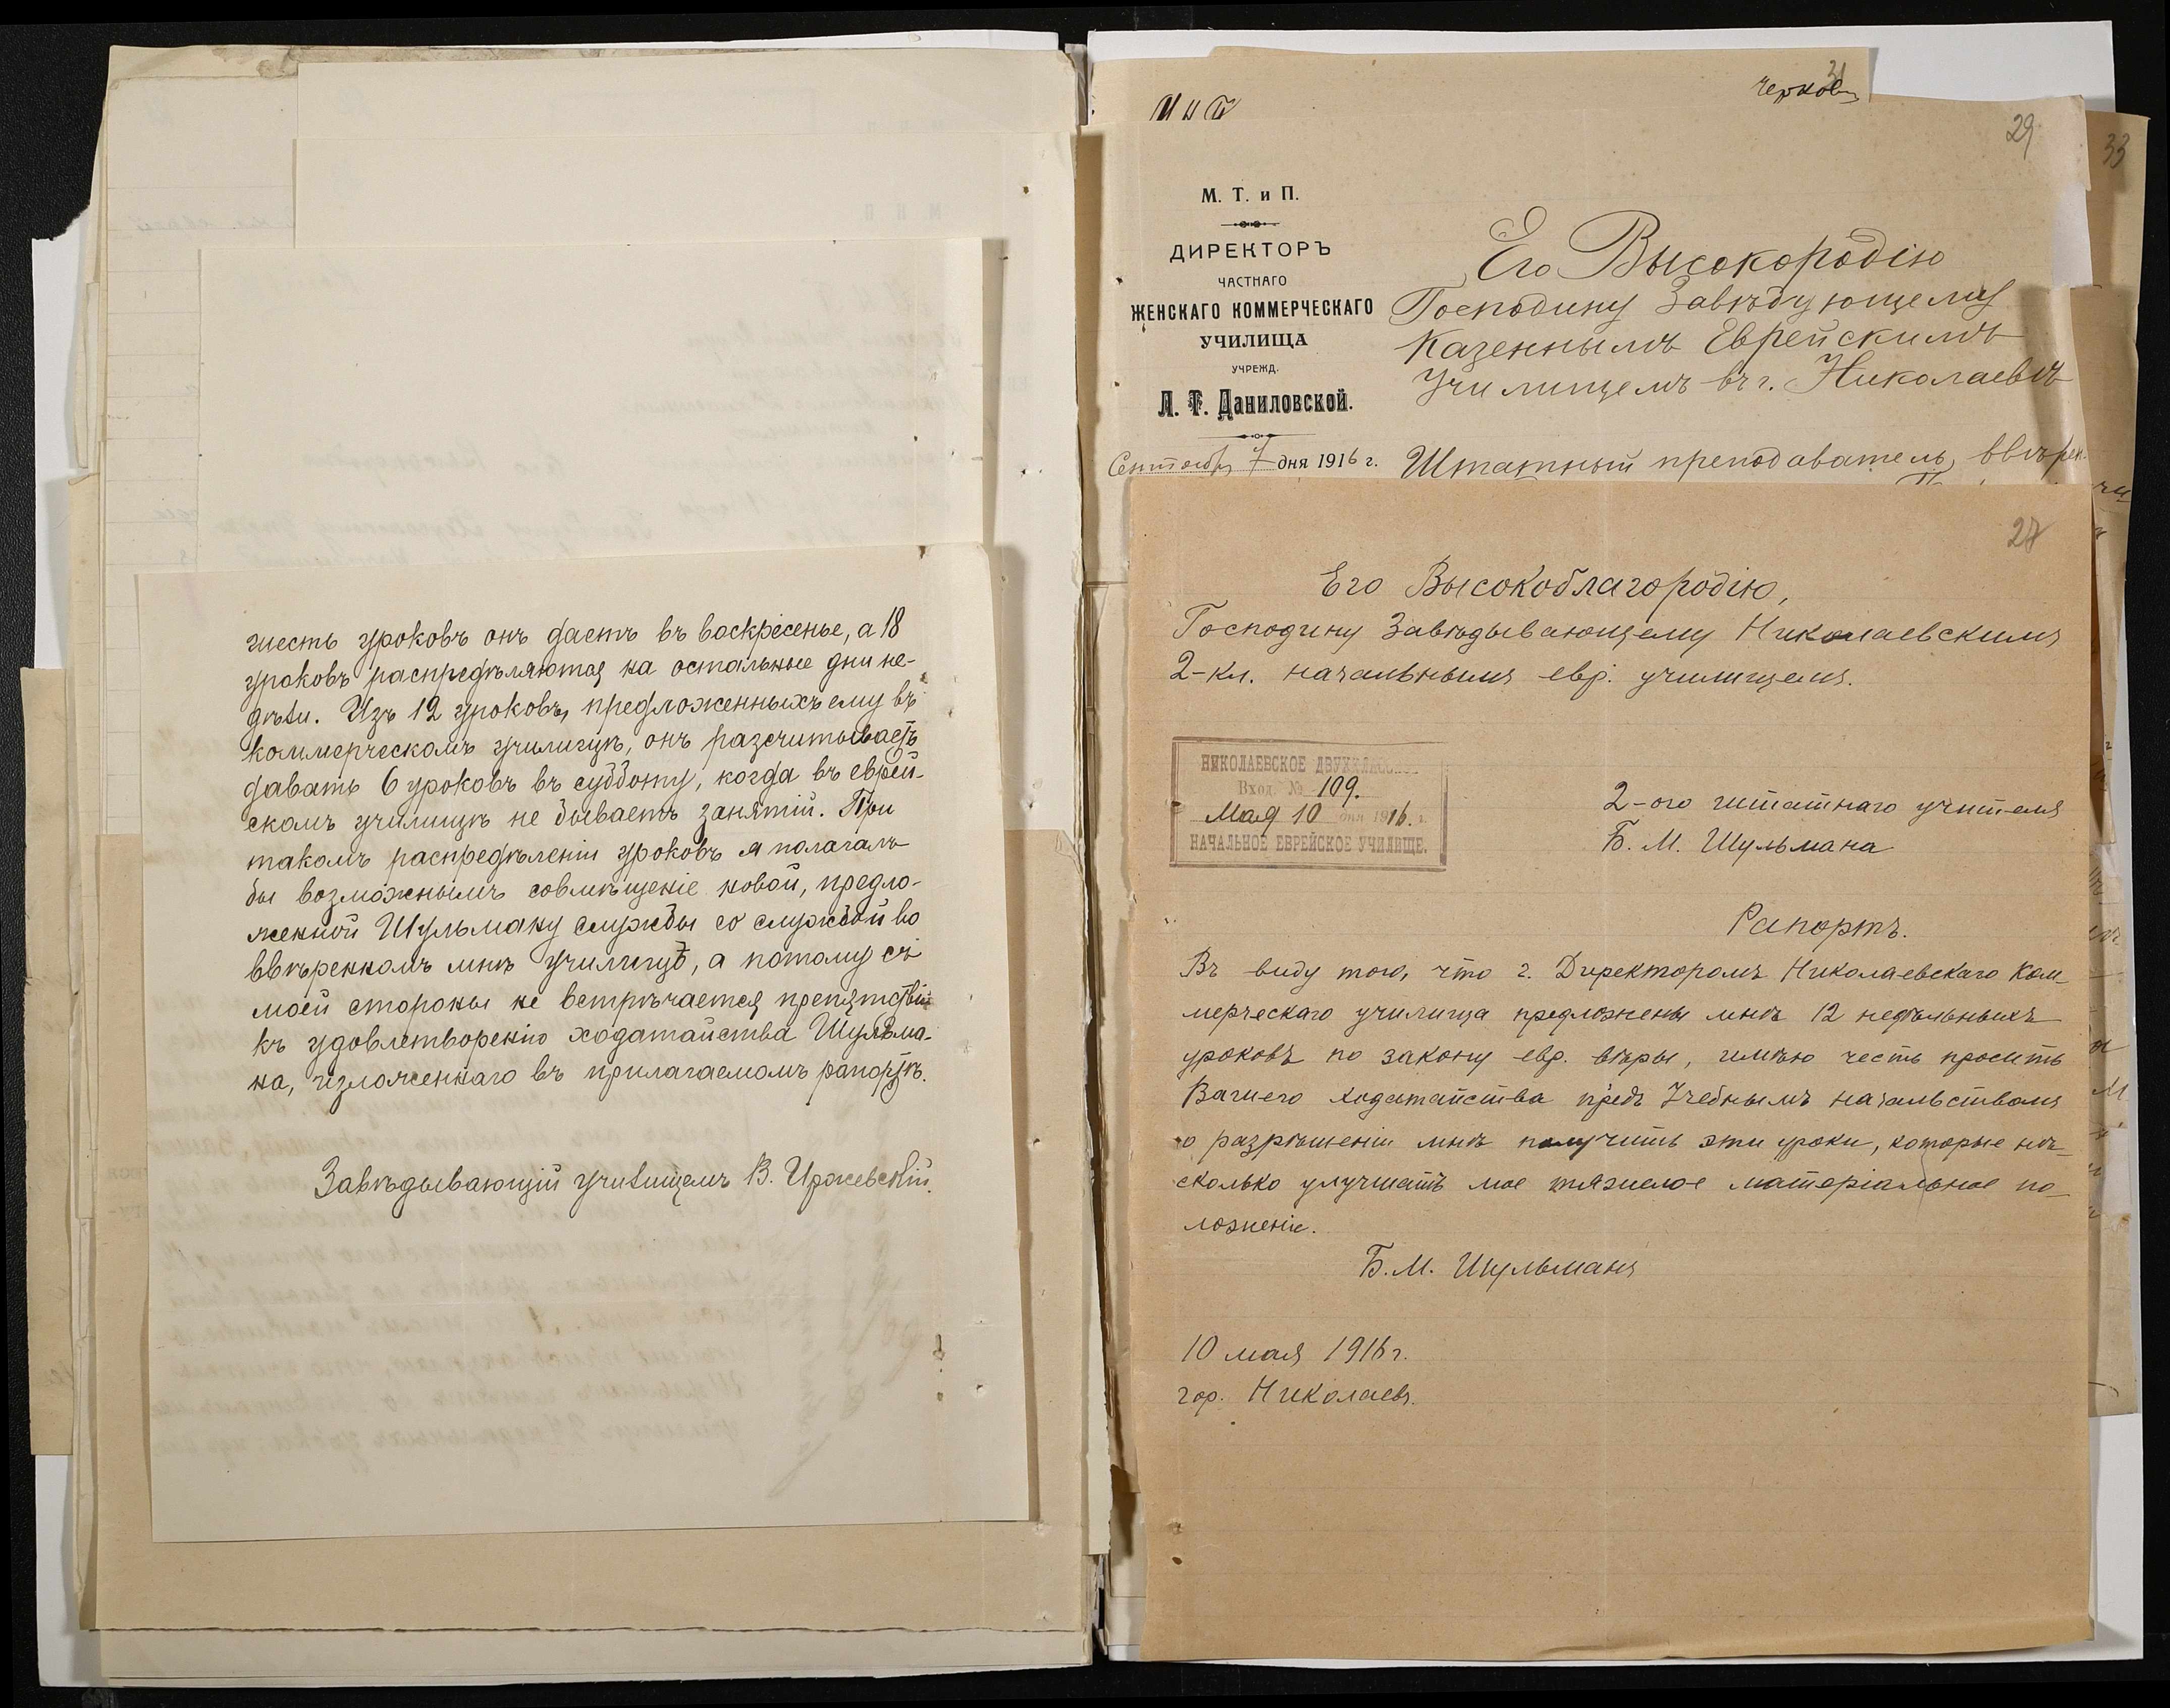 шесть уроковъ онъ даетъ въ воскресенье, а 18
уроковъ распредѣляются на остальные дни не-
дѣли. Изъ 12 уроковъ, предложенныхъ ему въ
коммерческомъ училищѣ, онъ разсчитываетъ
давать 6 уроковъ въ субботу, когда въ еврей-
скомъ училищѣ не бываетъ занятій. При
такомъ распредѣленіи уроковъ я полагалъ
бы возможнымъ совмѣщеніе новой, предло-
женной Шульману службы со службой во
ввѣренномъ мнѣ училищѣ, а потому съ
моей стороны не встрѣчается препятствій
къ удовлетворенію ходатайства Шульма-
на, изложеннаго въ прилагаемомъ рапортѣ.
Завѣдывающій училищемъ В. Иржевскій.
31
29
33
М. Т. и П.
ДИРЕКТОРЪ
ЧАСТНАГО
ЖЕНСКАГО КОММЕРЧЕСКАГО
УЧИЛИЩА
УЧРЕЖД.
Л. Т. Даниловской.
Сентября 7 дня 1916 г.
Его Высокородію
Господину Завѣдующему
Казеннымъ Еврейскимъ
Училищемъ въ г. Николаевѣ
Штатный преподаватель, ввѣрен-
27
Его Высокоблагородію,
Господину Завѣдывающему Николаевскимъ
2-кл. начальнымъ евр. училищемъ.
НИКОЛАЕВСКОЕ ДВУХКЛАССНОЕ
Вход. № 109.
Мая 10 дня 1916. г.
НАЧАЛЬНОЕ ЕВРЕЙСКОЕ УЧИЛИЩЕ.
2-ого штатнаго учителя
Б. М. Шульмана
Рапортъ.
Въ виду того, что г. Директоромъ Николаевскаго Ком-
мерческаго училища предложены мнѣ 12 недѣльныхъ
уроковъ по закону евр. вѣры, имѣю честь просить
Вашего ходатайства предъ Учебнымъ начальствомъ
о разрѣшеніи мнѣ получить эти уроки, которые нѣ-
сколько улучшатъ мое тяжелое матеріальное по-
ложеніе.
Б. М. Шульманъ
10 мая 1916 г.
гор. Николаевъ.